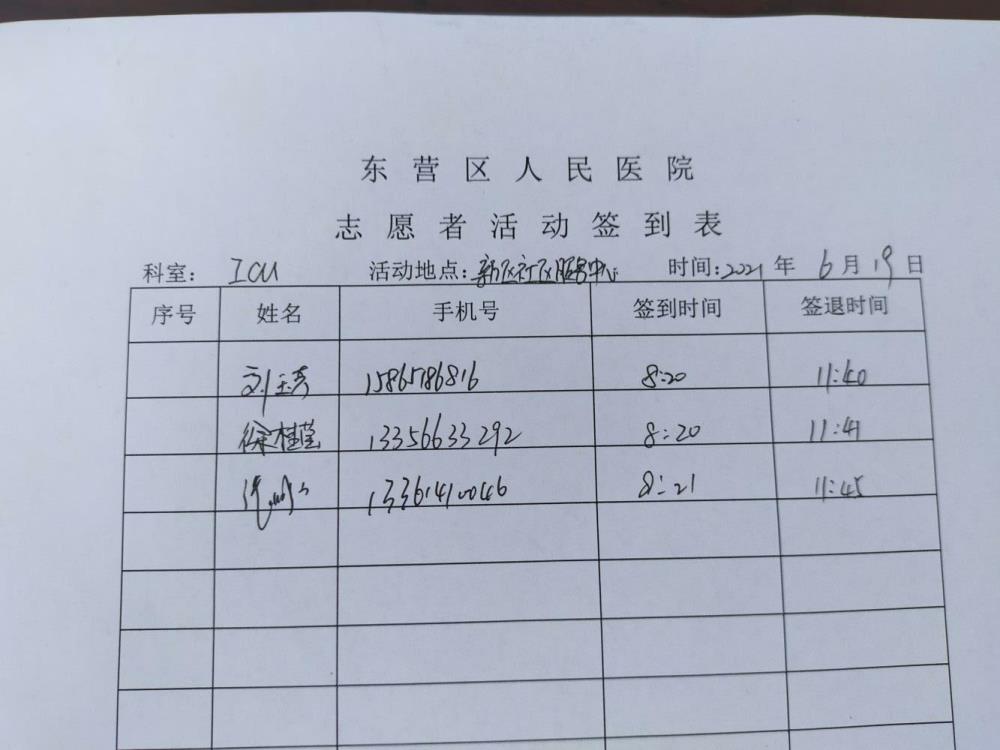 东营区人民医院
志愿者活动签到表
科室: ICU 活动地点: 新区社区服务中心 时间: 2021 年 6 月 19 日
序号 姓名 手机号 签到时间 签退时间
刘玉芳 15865786816 8:20 11:40
徐桂莹 13356633292 8:20 11:41
13361410046 8:21 11:45